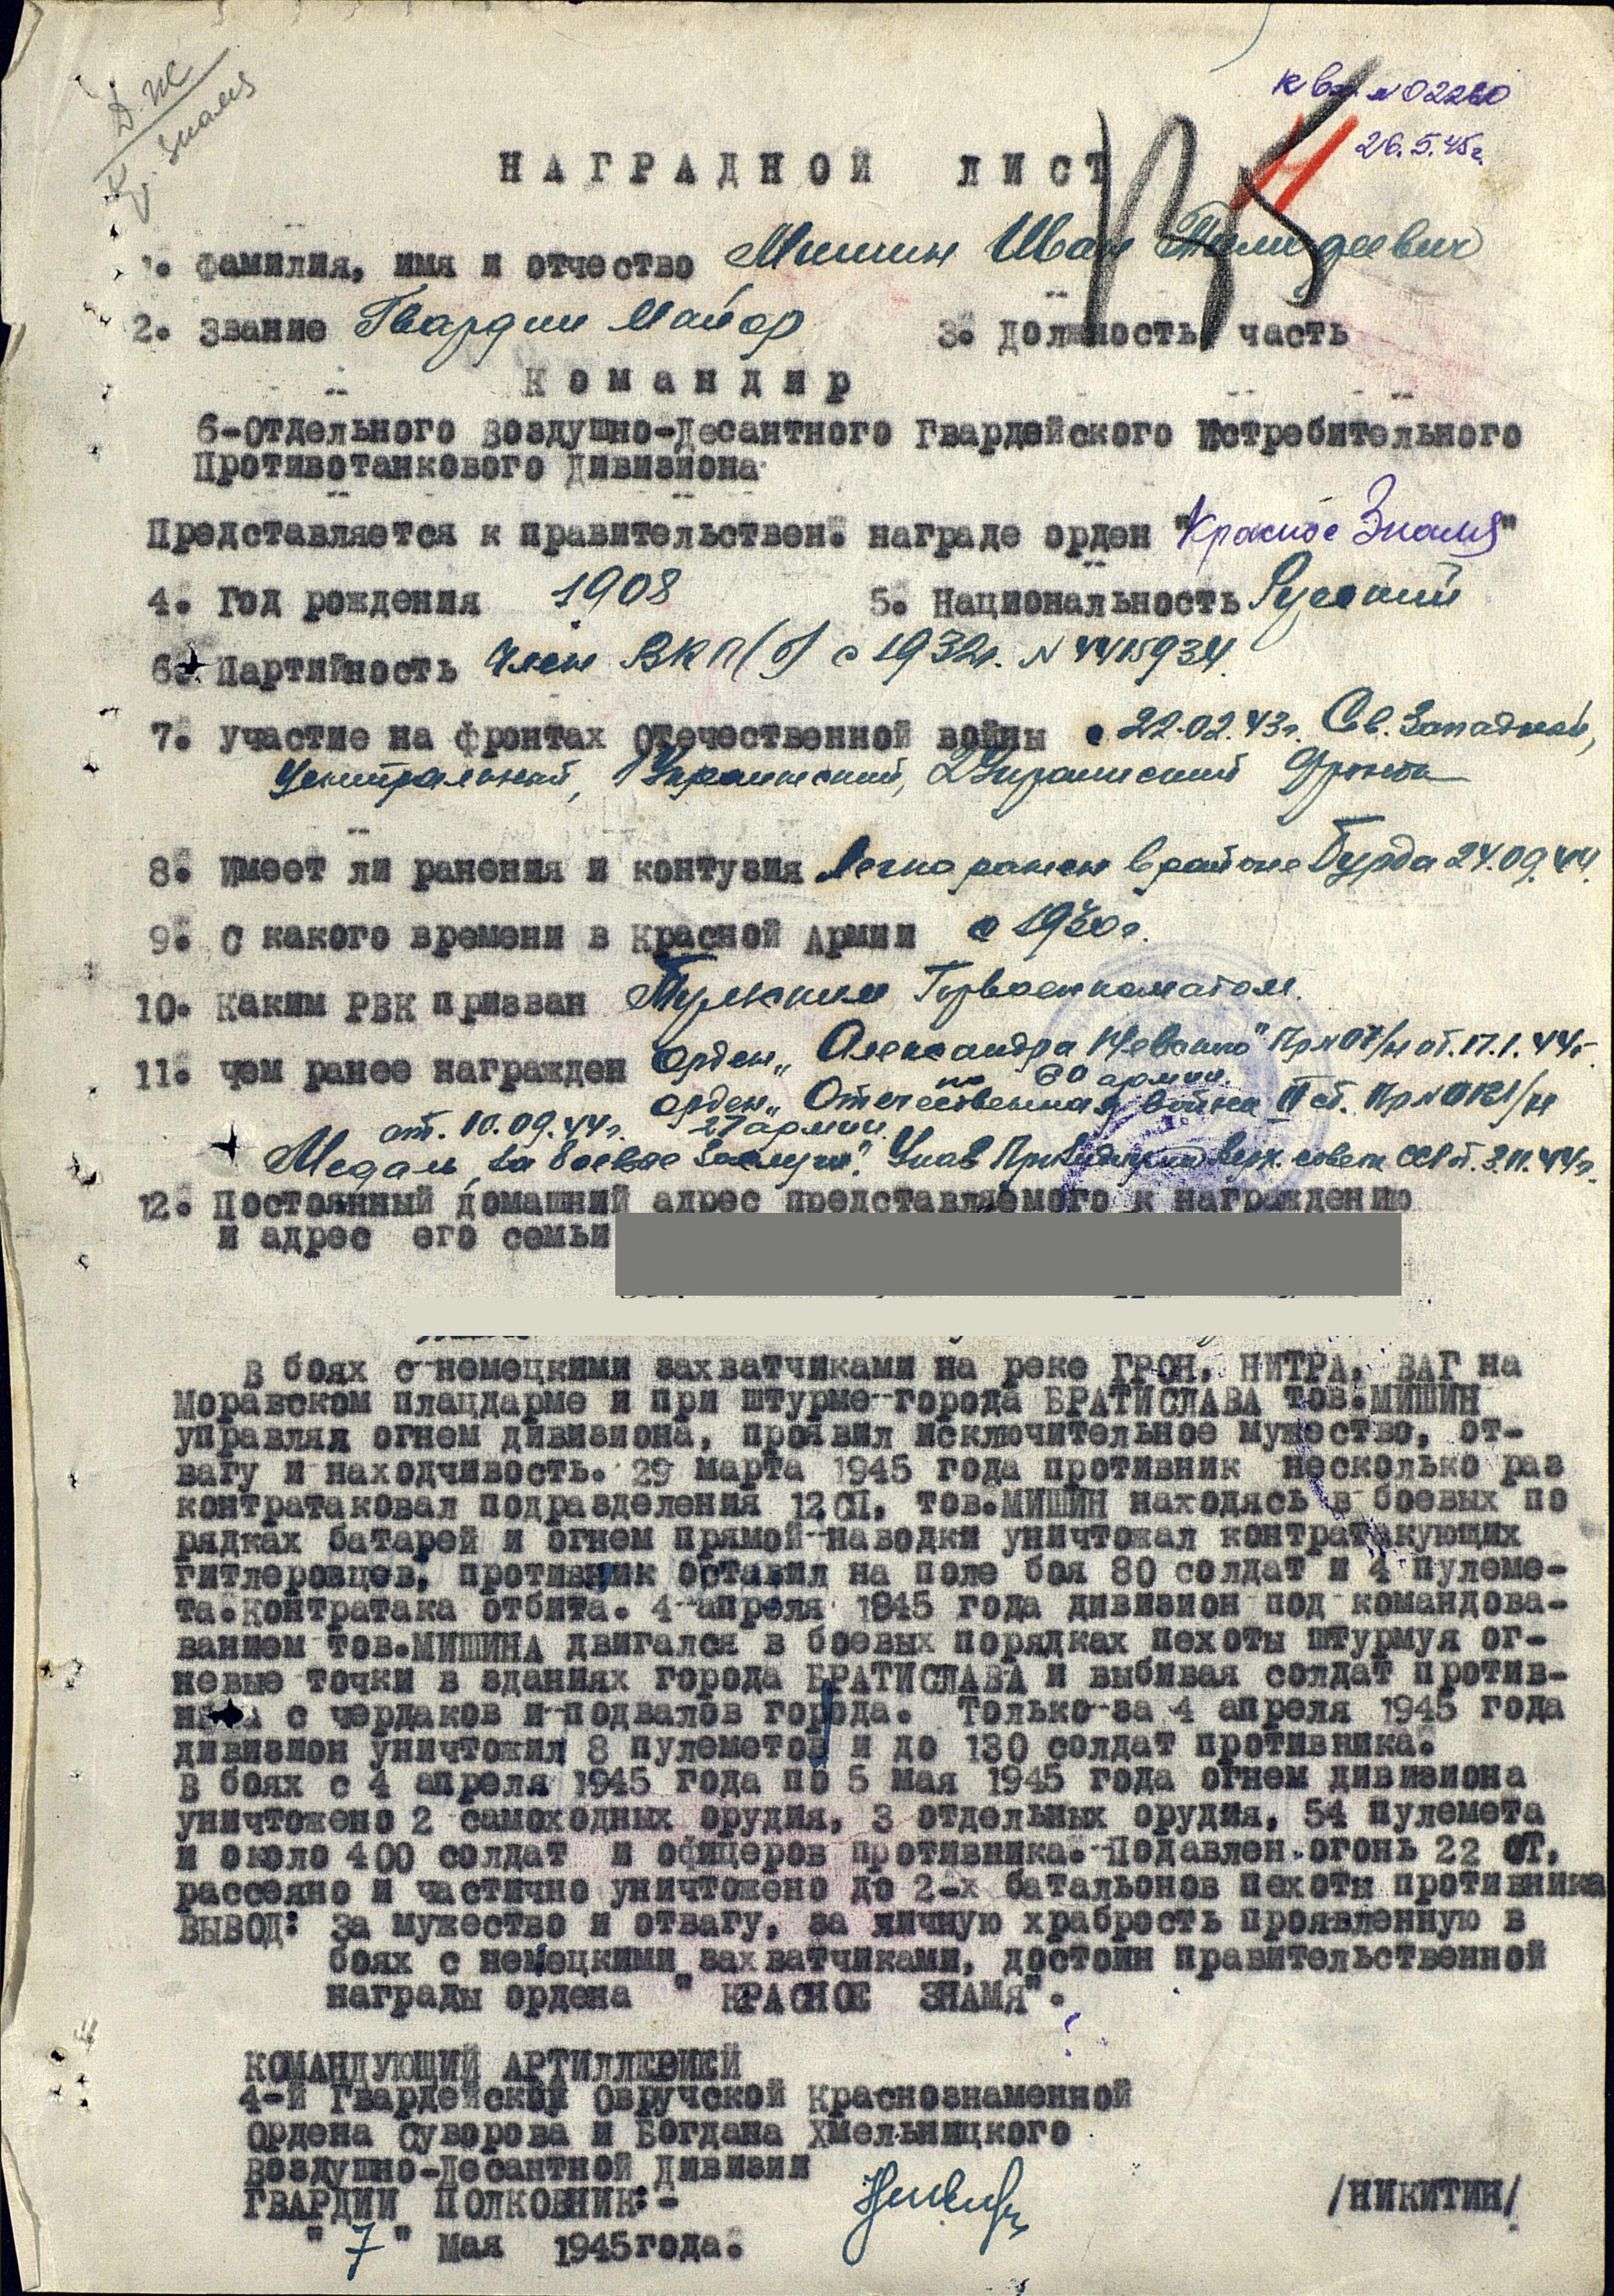 к вх. №02260
26.5.45г.
Кр. Знамя
НАГРАДНОЙ ЛИСТ
1. Фамилия, имя и отчество Мишин Иван
2. Звание Гвардии Майор 3. Должность, часть
Командир
6-Отдельного Воздушно-Десантного Гвардейского Истребительного
Противотанкового Дивизиона
Представляется к правительствен. награде орден "Красное Знамя"
4. Год рождения 1908 5. Национальность Русский
6. Партийность Член ВКП(б) с 1932г. N 4415934.
7. Участие на фронтах Отечественной войны с 22.02.43г. Сев. Западный,
Центральный, 1 Украинский, 2 Украинский Фронта
8. Имеет ли ранения и контузия Легко ранен в районе Бурда 24.09.44.
9. С какого времени в Красной Армии с 1930г.
10. Каким РВК призван Тульским Горвоенкоматом.
11. Чем ранее награжден Орден „Александра Невского" Пр№07/н от. 17.1.44г.
по 60 армии.
Орден „Отечественная война II ст. Пр№ /н
от. 10.09.44г. 27 армии.
Медаль „За боевые Заслуги". Указ Президиума Верх. совета СССР от. 3.11.44г.
12. Постоянный домашний адрес представляемого к награждению
и адрес его семьи
В боях с немецкими захватчиками на реке ГРОН, НИТРА, ВАГ на
Моравском плацдарме и при штурме города БРАТИСЛАВА тов.МИШИН
управляя огнем дивизиона, проявил исключительное мужество, от-
вагу и находчивость. 29 марта 1945 года противник несколько раз
контратаковал подразделения 12 СП, тов.МИШИН находясь в боевых по
рядках батарей и огнем прямой наводки уничтожал контратакующих
гитлеровцев, противник оставил на поле боя 80 солдат и 4 пулеме-
та.Контратака отбита. 4 апреля 1945 года дивизион под командова-
ванием тов.МИШИНА двигался в боевых порядках пехоты штурмуя ог-
невые точки в зданиях города БРАТИСЛАВА и выбивая солдат против-
ника с чердаков и подвалов города. Только за 4 апреля 1945 года
дивизион уничтожил 8 пулеметов и до 130 солдат противника.
В боях с 4 апреля 1945 года по 5 мая 1945 года огнем дивизиона
уничтожено 2 самоходных орудия, 3 отдельных орудия, 54 пулемета
и около 400 солдат и офицеров противника. Подавлен огонь 22 ОТ,
рассеяно и частично уничтожено до 2-х батальонов пехоты противника
ВЫВОД: За мужество и отвагу, за личную храбрость проявленную в
боях с немецкими захватчиками, достоин правительственной
награды ордена " КРАСНОЕ ЗНАМЯ".
КОМАНДУЮЩИЙ АРТИЛЛЕРИЕЙ
4-й Гвардейской Овручской Краснознаменной
Ордена Суворова и Богдана Хмельницкого
Воздушно-Десантной Дивизии
ГВАРДИИ ПОЛКОВНИК:-
/НИКИТИН/
" 7 " Мая 1945года.